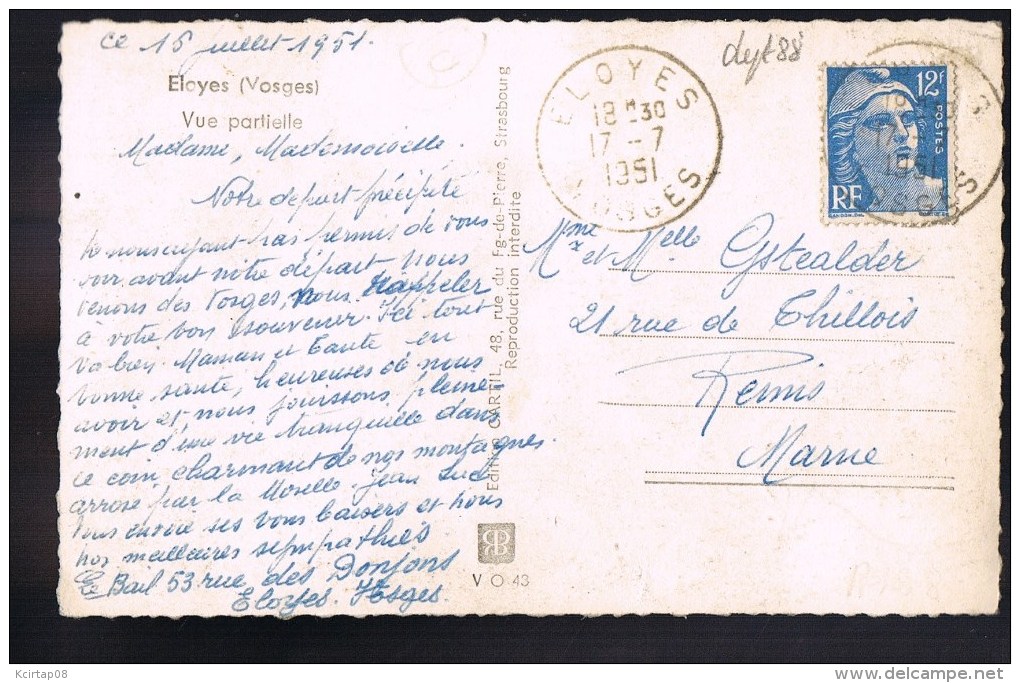 ce 15 juillet 1951.
Eloyes (Vosges)
Vue partielle
Madame, Mademoiselle.
Notre départ précipité
ne nous ayant pas permis de vous
voir avant notre départ nous
venons des Vosges, nous rappeler
à votre bon souvenir. Ici tout
va bien. Maman et Tante en
bonne santé, heureuses de nous
avoir et nous jouissons pleine-
ment d'une vie tranquille dans
ce coin charmant de nos montagnes
arrosé par la Moselle. Jean Luc
vous envoie ses bons baisers et nous
nos meilleures sympathies
Le Bail 53 rue des Donjons
Eloyes. Vosges
Editions CARTIL, 48, rue du Fg-de-Pierre, Strasbourg
Reproduction interdite
V O 43
ELOYES
18 H 30
17 - 7
1951
VOSGES
dept 88
12F
POSTES
RF
18
17
1951
VOSGES
Mme et Melle Gstealder
21 rue de Thillois
Reims
Marne
Kcirtap08
delcampe.net